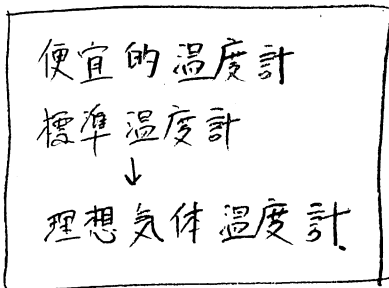 便宜的温度計
標準温度計
↓
理想気体温度計.